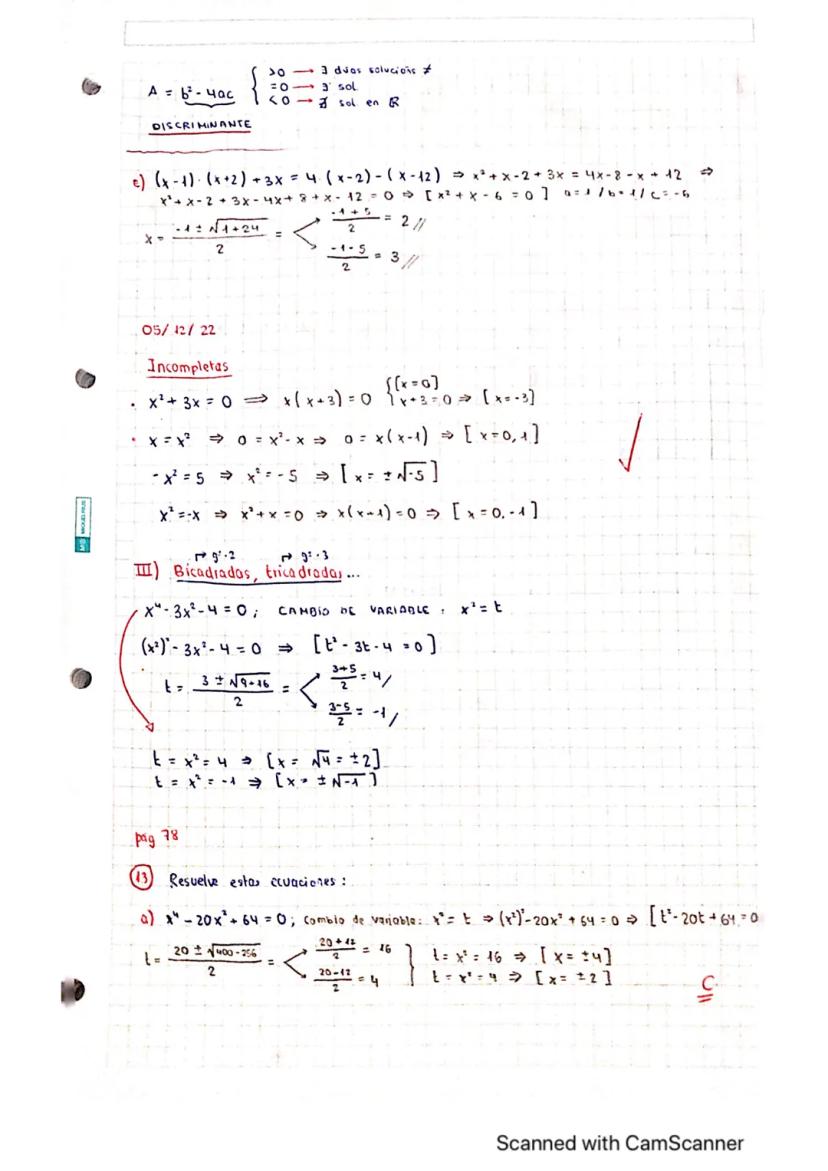 >0 → ∃ duas solucións ≠
A = b² - 4ac { =0 → ∃ sol
<0 → ∄ sol en ℝ
DISCRIMINANTE
c) (x-1)·(x+2)+3x = 4·(x-2)-(x-12) ⇒ x²+x-2+3x = 4x-8-x+12 ⇒
x²+x-2+3x-4x+8+x-12=0 ⇒ [x²+x-6=0] a=1/b=1/c=-6
x = (-1±√1+24)/2 = < (-1+5)/2 = 2//
(-1-5)/2 = 3//
05/12/22
Incompletas
· x²+3x=0 ⟹ x(x+3)=0 { [x=0]
x+3=0 ⇒ [x=-3]
· x=x² ⇒ 0=x²-x ⇒ 0=x(x-1) ⇒ [x=0,1]
-x²=5 ⇒ x²=-5 ⇒ [x=±√-5]
x²=-x ⇒ x²+x=0 ⇒ x(x+1)=0 ⇒ [x=0,-1]
MB MIQUELRIUS
↱ gº·2 ↱ gº·3
III) Bicadradas, tricadradas...
x⁴-3x²-4=0; CAMBIO DE VARIABLE: x²=t
(x²)²-3x²-4=0 ⇒ [t²-3t-4=0]
t = (3±√9+16)/2 = < (3+5)/2 = 4/
(3-5)/2 = -1/
t = x² = 4 ⇒ [x=√4=±2]
t = x² = -1 ⇒ [x=±√-1]
pág 78
13 Resuelve estas ecuaciones:
a) x⁴-20x²+64=0; Cambio de variable: x²=t ⇒ (x²)²-20x²+64=0 ⇒ [t²-20t+64=0
t = (20±√400-256)/2 = < (20+12)/2 = 16 } t=x²=16 ⇒ [x=±4]
(20-12)/2 = 4 t=x²=4 ⇒ [x=±2]
C
Scanned with CamScanner